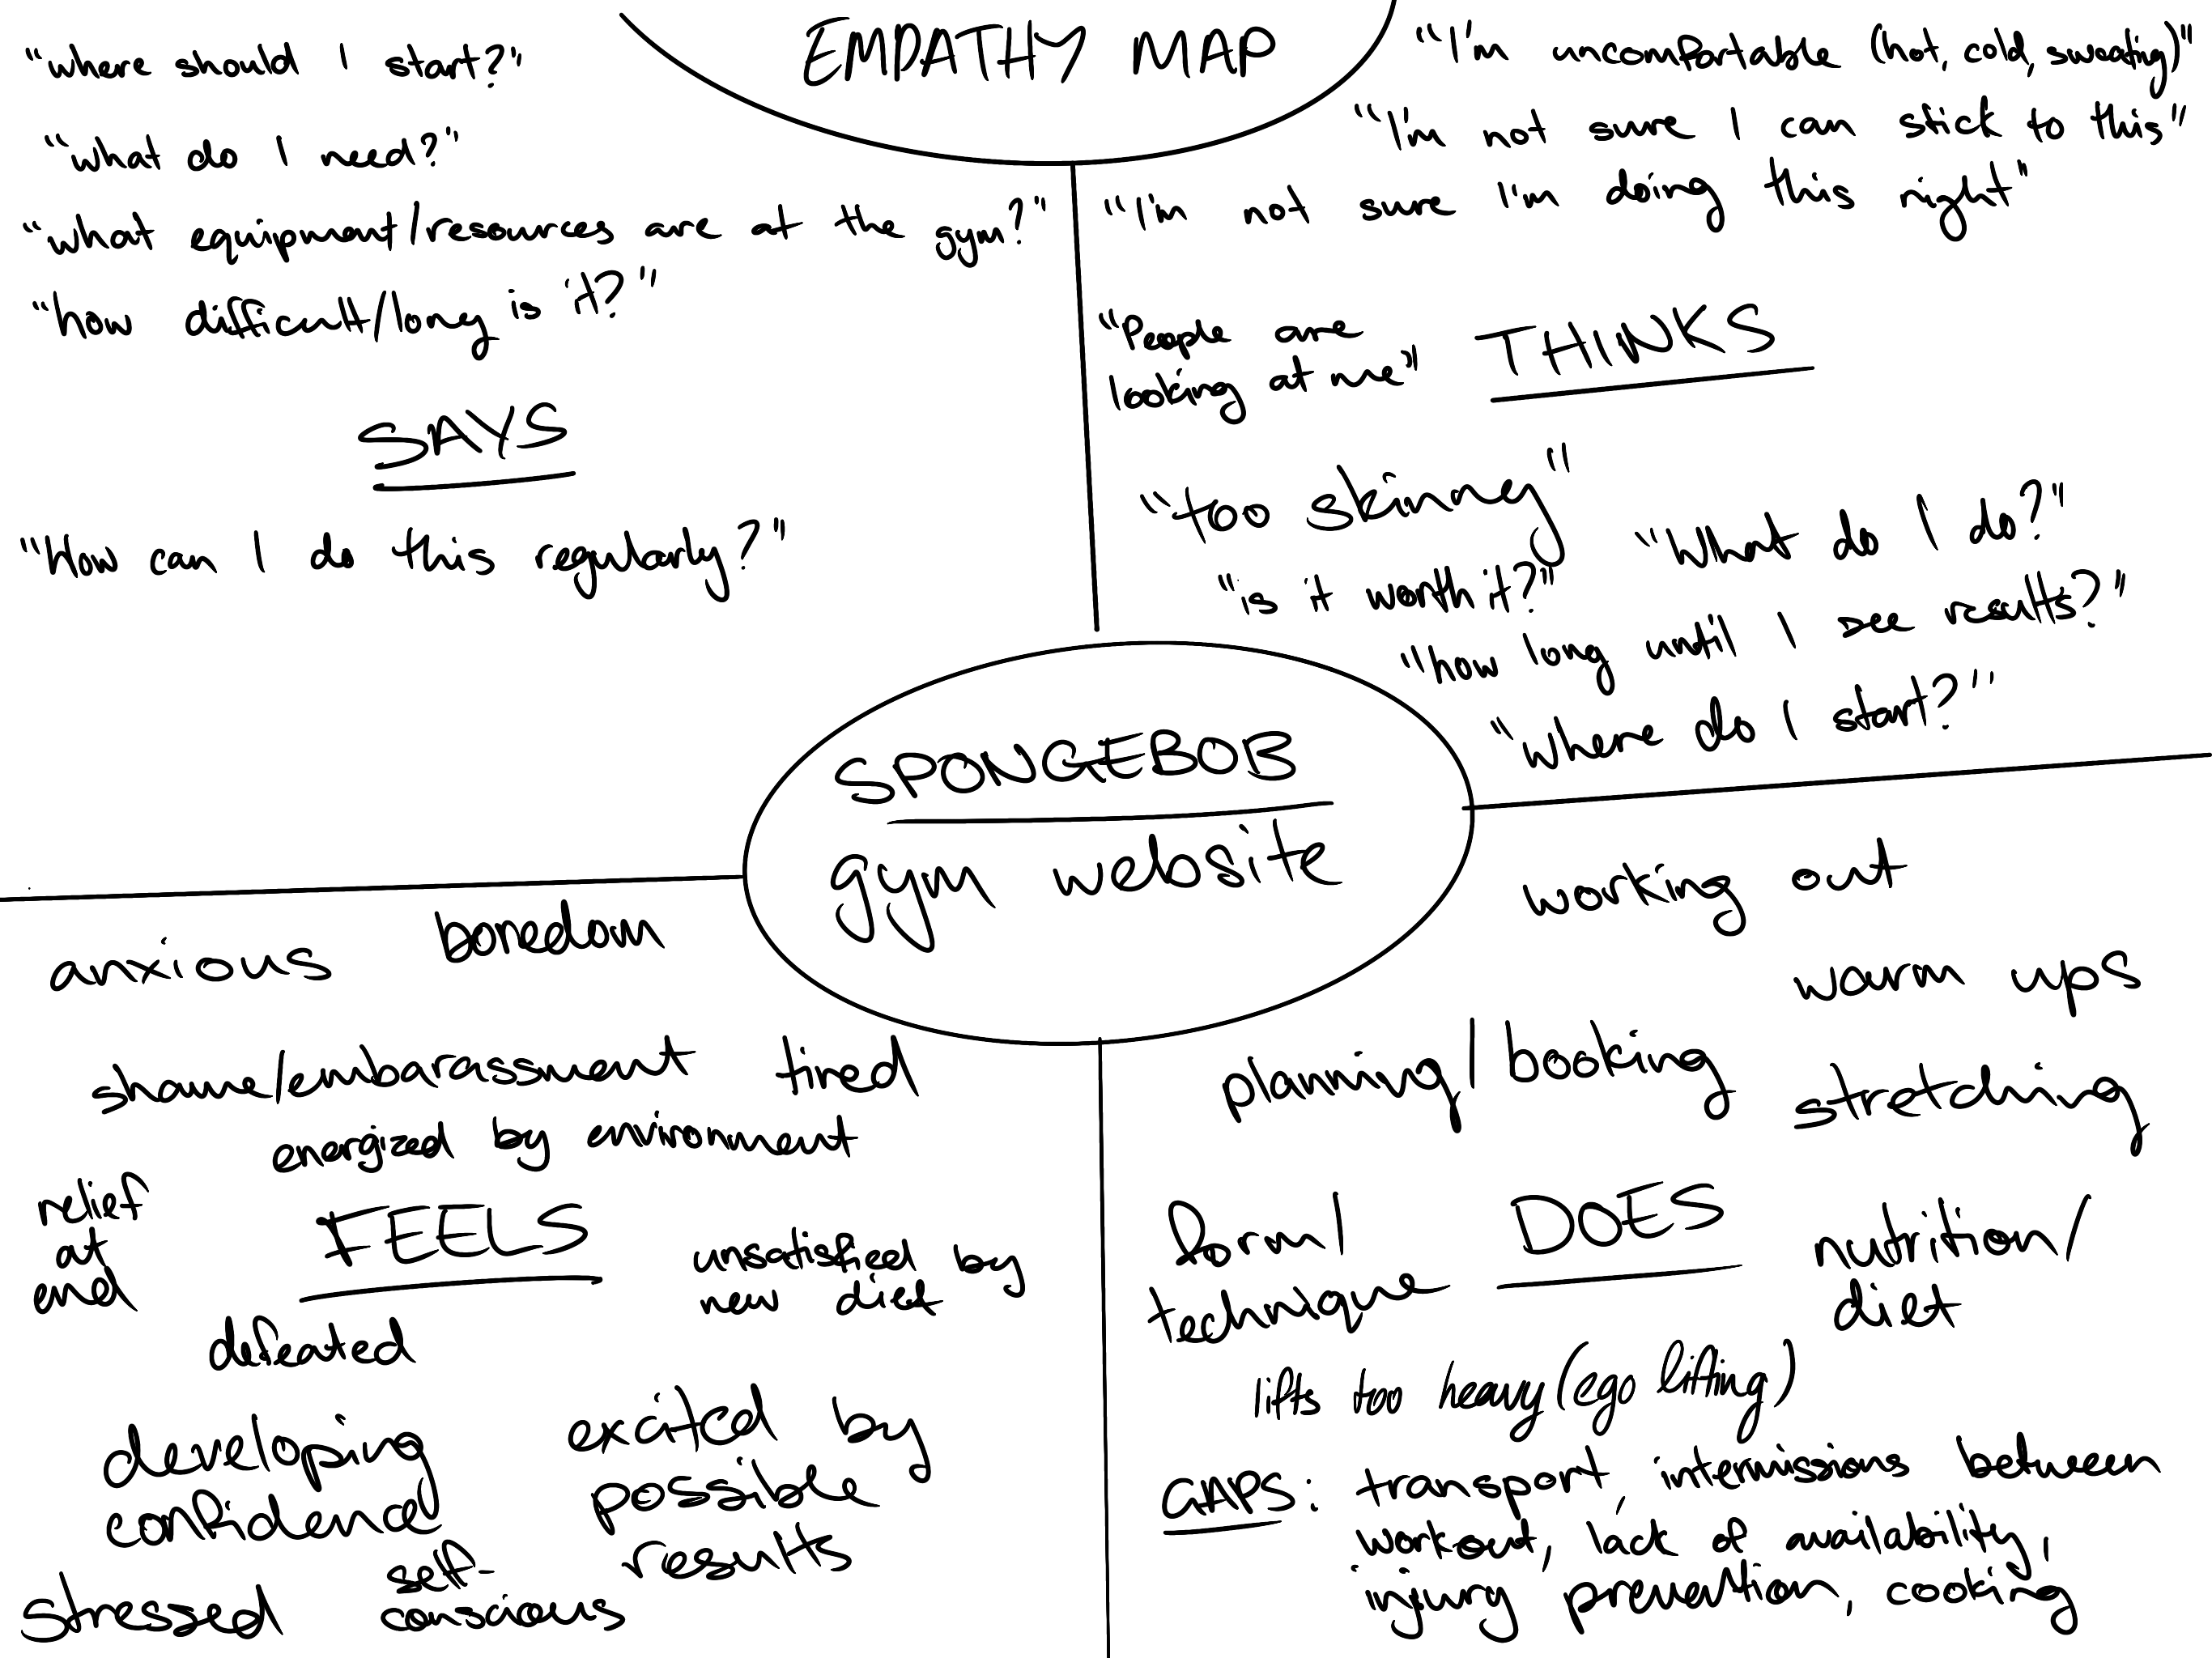 EMPATHY MAP
"where should I start?"
"what do I need?"
"what equipment/resources are at the gym?"
"how difficult/long is it?"
SAYS
"How can I do this regularly?"
"I'm uncomfortable (hot, cold, sweating)"
"I'm not sure I can stick to this"
"I'm not sure I'm doing this right"
"People are
looking at me"
THINKS
"too skinney"
"What do I do?"
"is it worth it?"
"how long until I see results?"
"where do I start?"
SPONGEBOB
gym website
anxious
boredom
shame/embarassment
tired
energized by environment
relief
at
end
FEELS
unsatisfied by
new diet
defeated
developing
confidence
excited by
possible
results
self-
conscious
stressed
working out
warm ups
planning/booking
stretching
form/
technique
DOES
nutrition/
diet
lifts too heavy (ego lifting)
GAPS: transport, intermissions between
workout, lack of availability,
injury prevention, cooking